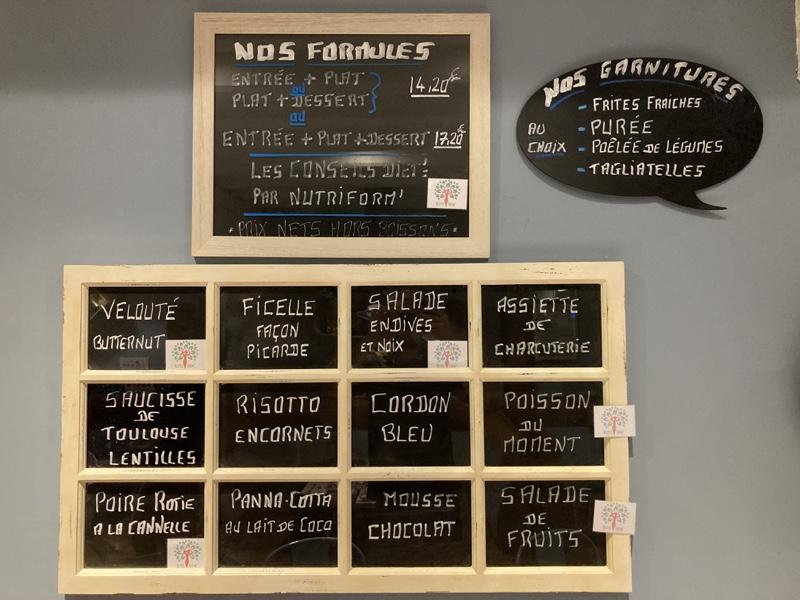 NOS FORMULES
ENTRÉE + PLAT
ou
PLAT + DESSERT
14,20€
ou
ENTRÉE + PLAT + DESSERT 17,20€
LES CONSEILS DIET'
PAR NUTRIFORM'
*PRIX NETS HORS BOISSONS*
NOS GARNITURES
AU CHOIX
- FRITES FRAICHES
- PURÉE
- POÊLÉE DE LÉGUMES
- TAGLIATELLES
VELOUTÉ
BUTTERNUT
FICELLE
FAÇON
PICARDE
SALADE
ENDIVES
ET NOIX
ASSIETTE
DE
CHARCUTERIE
SAUCISSE
DE
TOULOUSE
LENTILLES
RISOTTO
ENCORNETS
CORDON
BLEU
POISSON
DU
MOMENT
POIRE ROTIE
A LA CANNELLE
PANNA-COTTA
AU LAIT DE COCO
MOUSSE
CHOCOLAT
SALADE
DE
FRUITS